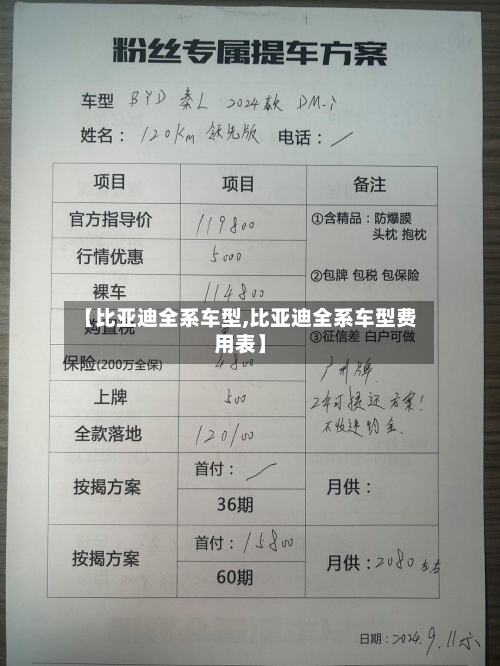 粉丝专属提车方案
车型 BYD 秦L 2024款 DM-i
姓名： 120km 领先版 电话： /
项目 项目 备注
官方指导价 119800 ①含精品：防爆膜
头枕 抱枕
行情优惠 5000
②包牌 包税 包保险
裸车 114800
【比亚迪全系车型,比亚迪全系车型费
用表】
购置税
③征信差 白户可做
保险(200万全保) 4800
广州牌.
上牌 500
2年可提还方案！
不收违约金.
全款落地 120100
按揭方案 首付： / 月供：
36期
按揭方案 首付：15800 月供：2080左右
60期
日期：2024.9.11